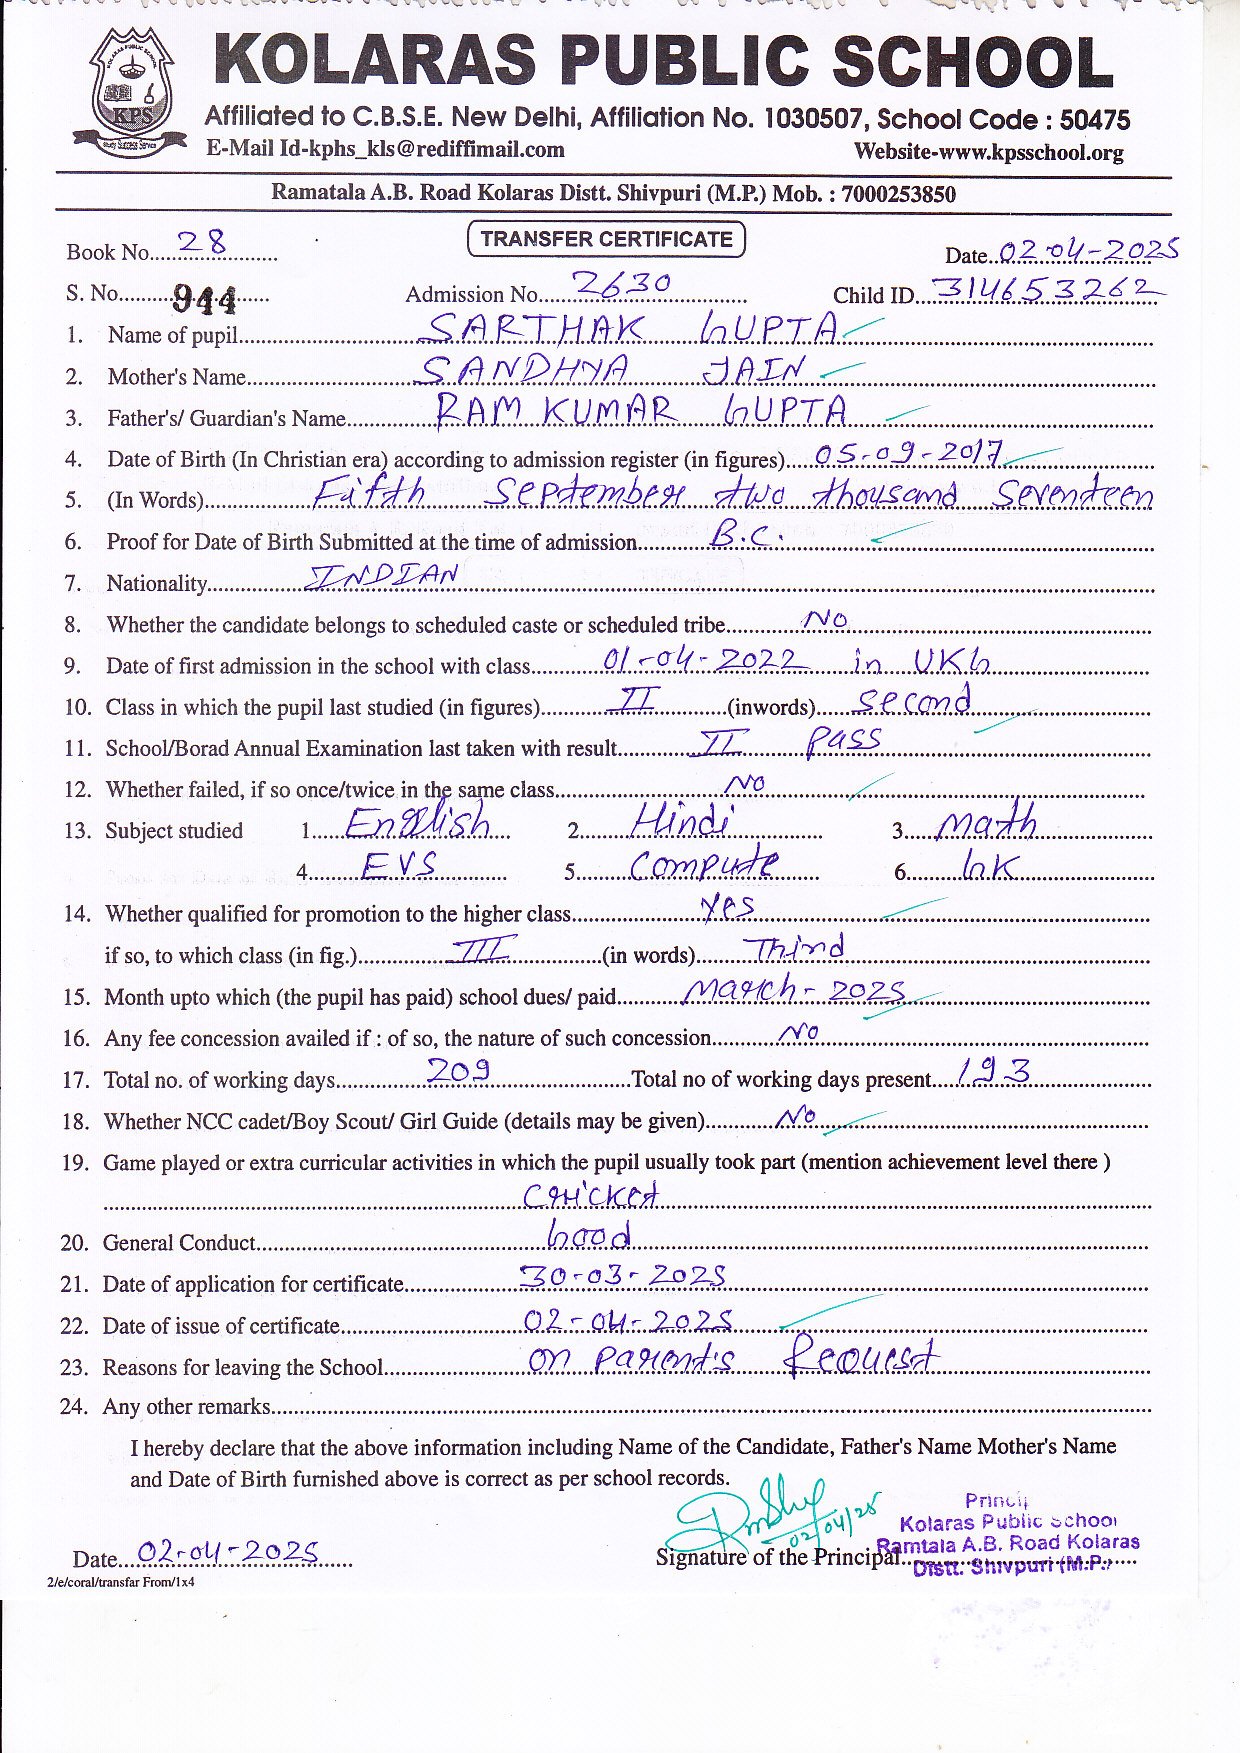 KOLARAS PUBLIC SCHOOL
Affiliated to C.B.S.E. New Delhi, Affiliation No. 1030507, School Code : 50475
E-Mail Id-kphs_kls@rediffimail.com Website-www.kpsschool.org
KPS
Ramatala A.B. Road Kolaras Distt. Shivpuri (M.P.) Mob. : 7000253850
TRANSFER CERTIFICATE
Book No. 28 Date. 02-04-2025
S. No. 944 Admission No. 2630 Child ID. 314653262
1. Name of pupil SARTHAK GUPTA
2. Mother's Name SANDHYA JAIN
3. Father's/ Guardian's Name RAM KUMAR GUPTA
4. Date of Birth (In Christian era) according to admission register (in figures) 05-09-2017
5. (In Words) Fifth September two thousand Seventeen
6. Proof for Date of Birth Submitted at the time of admission B.C.
7. Nationality INDIAN
8. Whether the candidate belongs to scheduled caste or scheduled tribe NO
9. Date of first admission in the school with class 01-04-2022 in UKG
10. Class in which the pupil last studied (in figures) II (inwords) Second
11. School/Borad Annual Examination last taken with result II Pass
12. Whether failed, if so once/twice in the same class NO
13. Subject studied 1. English 2. Hindi 3. Math
4. EVS 5. Compute 6. GK
14. Whether qualified for promotion to the higher class Yes
if so, to which class (in fig.) III (in words) Third
15. Month upto which (the pupil has paid) school dues/ paid March-2025
16. Any fee concession availed if : of so, the nature of such concession NO
17. Total no. of working days 209 Total no of working days present 193
18. Whether NCC cadet/Boy Scout/ Girl Guide (details may be given) NO
19. Game played or extra curricular activities in which the pupil usually took part (mention achievement level there )
Cricket
20. General Conduct Good
21. Date of application for certificate 30-03-2025
22. Date of issue of certificate 02-04-2025
23. Reasons for leaving the School on Parent's Request
24. Any other remarks
I hereby declare that the above information including Name of the Candidate, Father's Name Mother's Name
and Date of Birth furnished above is correct as per school records.
02/04/25
Kolaras Public School
Ramtala A.B. Road Kolaras
Distt. Shivpuri (M.P.)
Date. 02-04-2025 Signature of the Principal
2/e/coral/transfar From/1x4